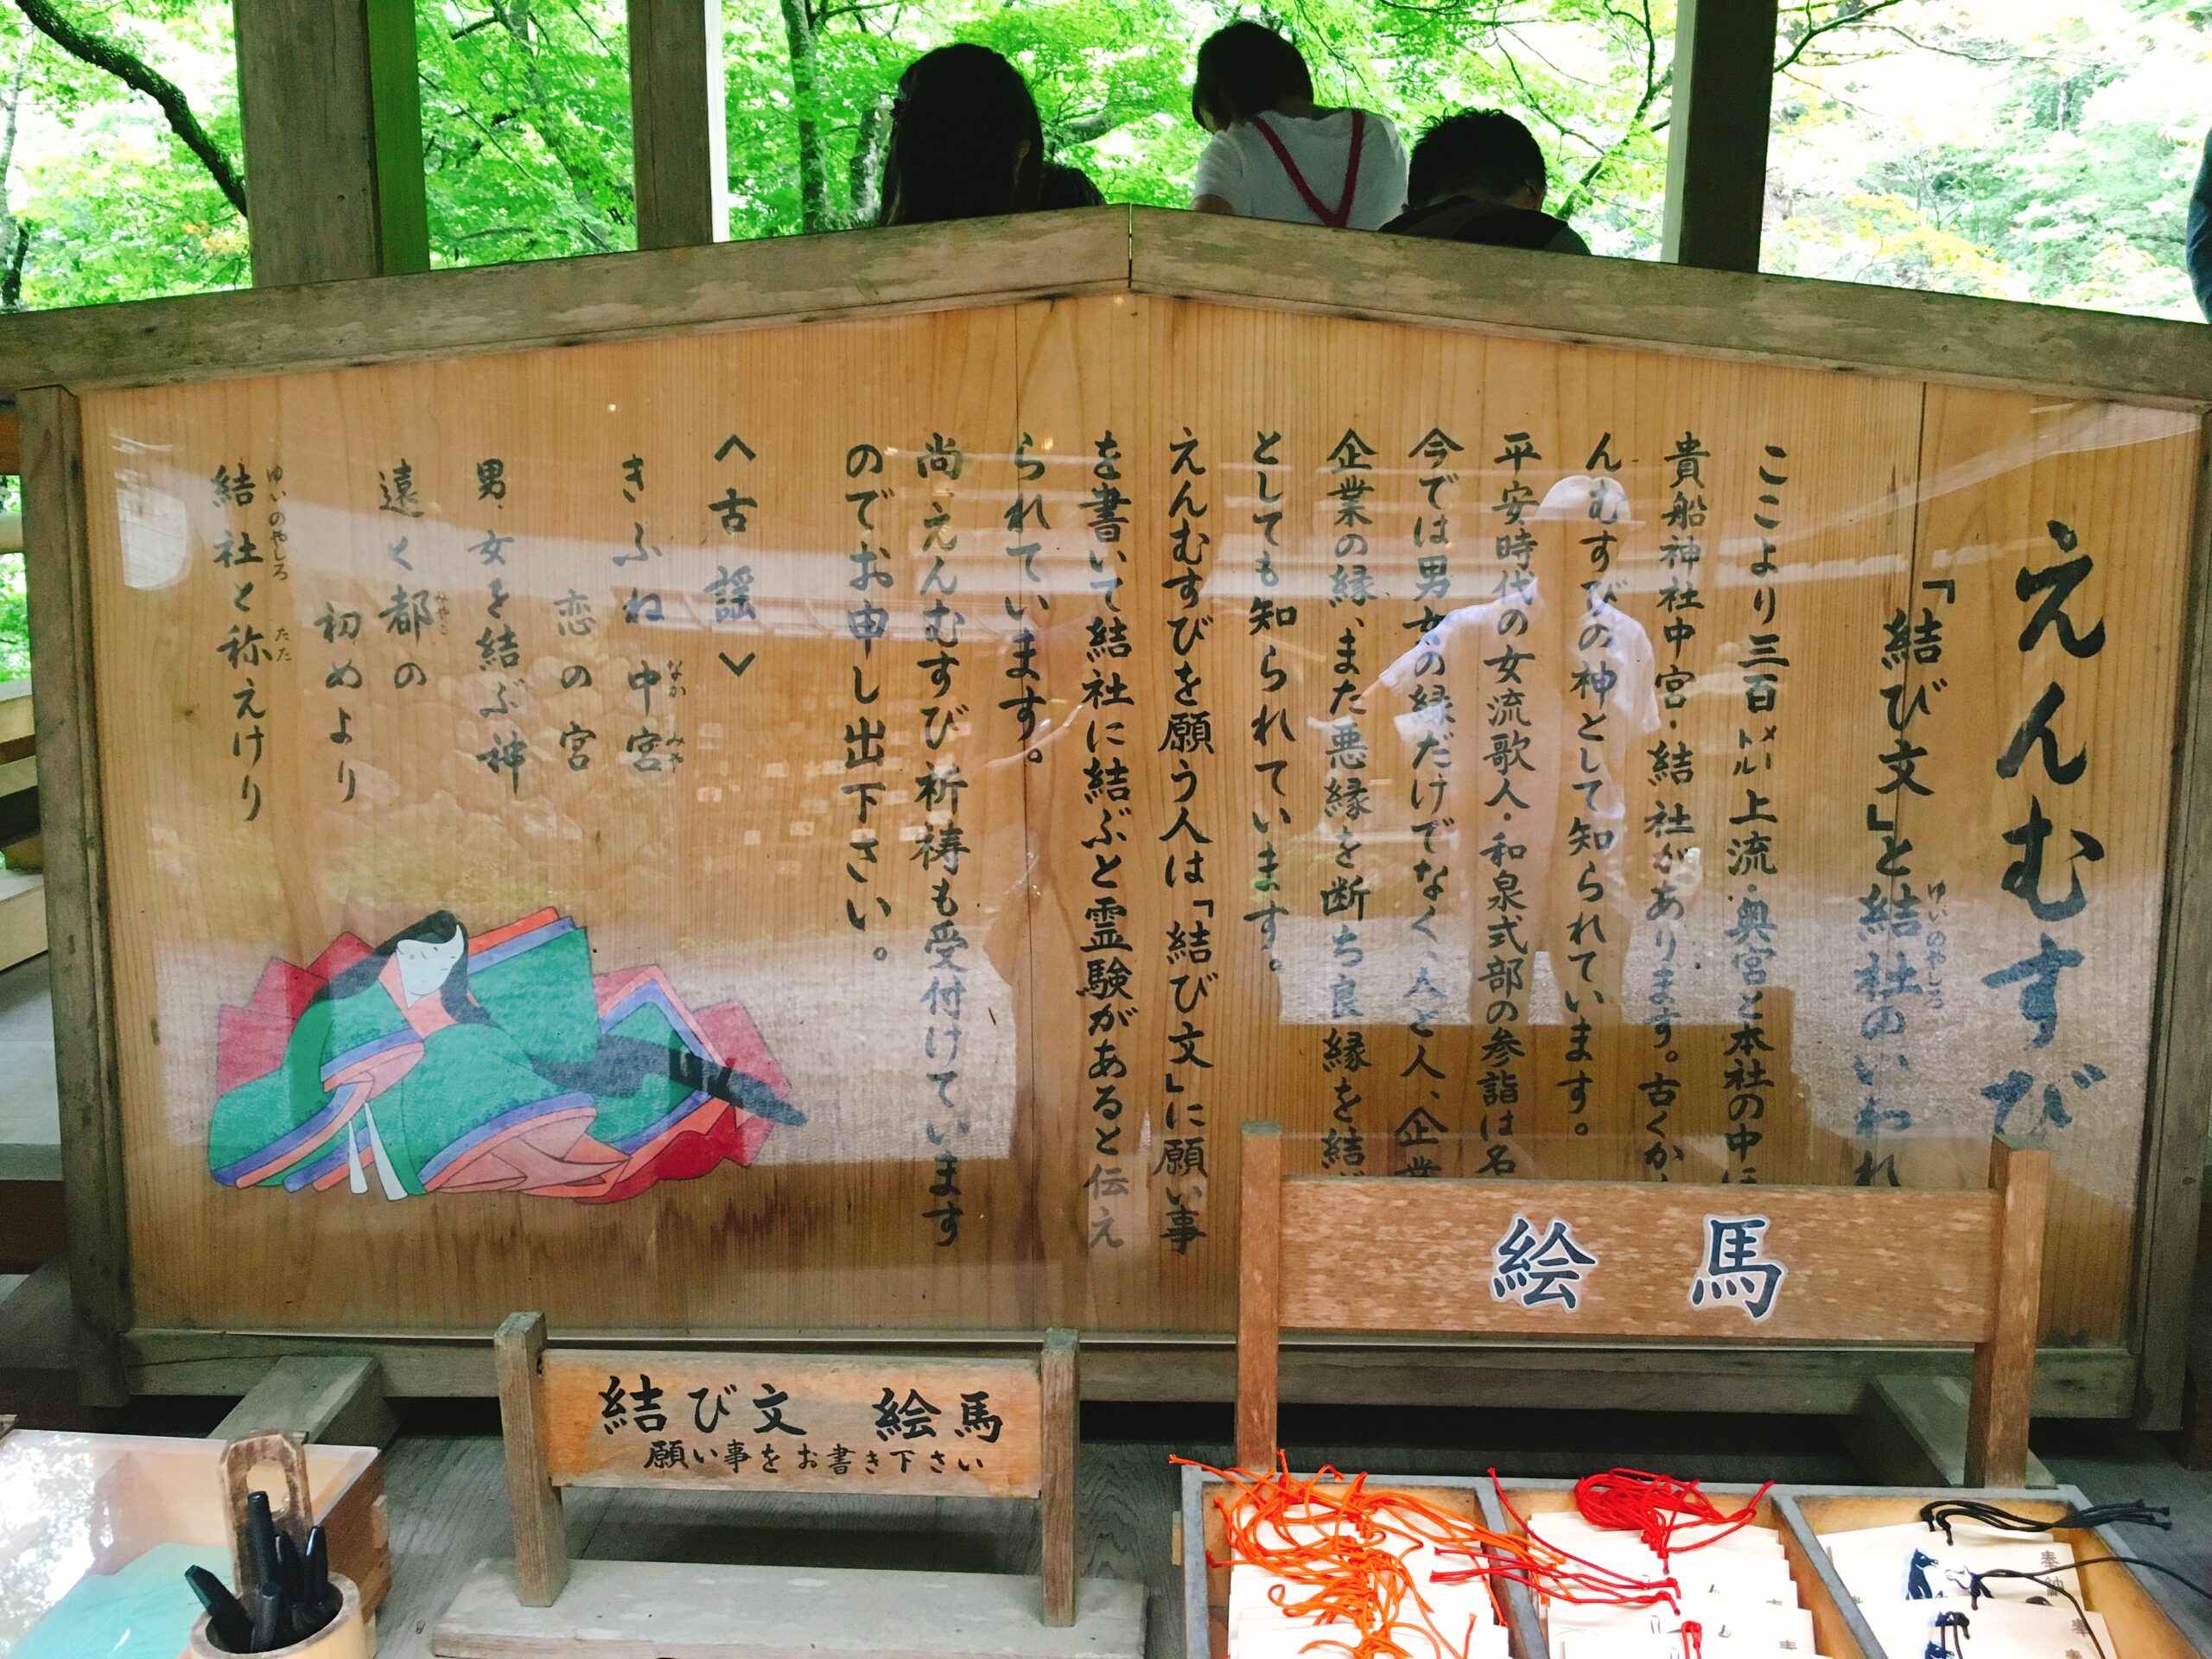 えんむすび
「結び文」と結社のいわれ
ゆいのやしろ
ここより三百メートル上流・奥宮と本社の中ほ
貴船神社中宮・結社があります。古くか
んむすびの神として知られています。
平安時代の女流歌人・和泉式部の参詣は名
今では男女の縁だけでなく、人と人、企業
企業の縁、また悪縁を断ち良縁を結
としても知られています。
えんむすびを願う人は「結び文」に願い事
を書いて結社に結ぶと霊験があると伝え
られています。
尚えんむすび祈祷も受付けています
のでお申し出下さい。
〈古謡〉
きふね中宮
なかみや
恋の宮
男女を結ぶ神
遠く都の
みやこ
初めより
結社と称えけり
ゆいのやしろ たた
絵馬
結び文 絵馬
願い事をお書き下さい
奉納
奉
奉